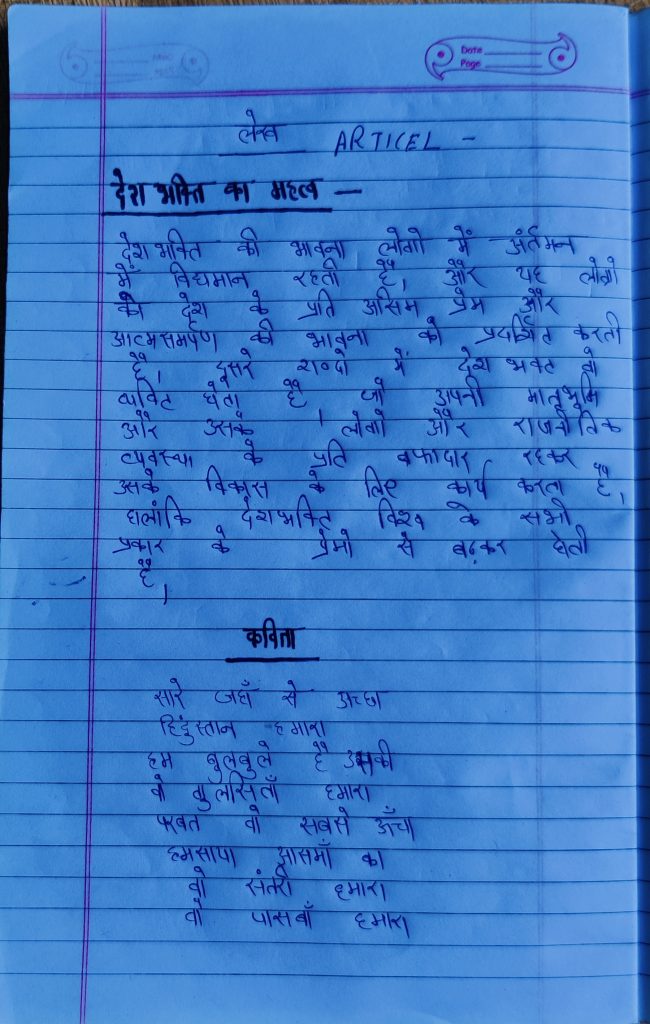 Date
Page
लेख ARTICEL -
देश भक्ति का महत्व —
देशभक्ति की भावना लोगो में अंर्तमन
में विद्यमान रहती है, और यह लोगो
को देश के प्रति असिम प्रेम और
आत्मसमर्पण की भावना को प्रदर्शित करती
है, दुसरे शब्दो में देश भक्त वो
व्यक्ति होता है, जो अपनी मातृभुमि
और उसके लोगो और राजनैतिक
व्यवस्था के प्रति वफादार रहकर
उसके विकास के लिए कार्य करता है,
हालांकि देशभक्ति विश्व के सभी
प्रकार के प्रेमो से बढ़कर होती
है,
कविता
सारे जहाँ से अच्छा
हिंदुस्तान हमारा
हम बुलबुले है उसकी
वो गुलसिताँ हमारा
परबत वो सबसे ऊँचा
हमसाया आसमाँ का
वो संतरी हमारा
वो पासबाँ हमारा